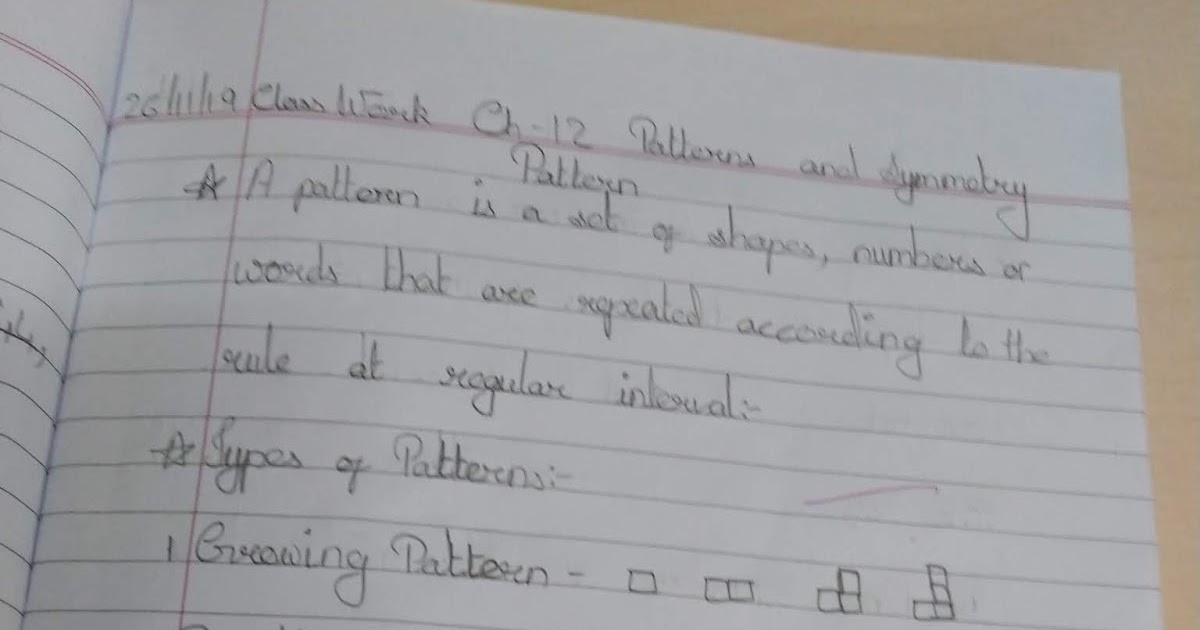 26/11/19 Class Work Ch-12 Patterns and Symmetry
Pattern
☆ A pattern is a set of shapes, numbers or
words that are repeated according to the
rule at regular interval:-
☆ Types of Patterns:-
1 Growing Pattern -